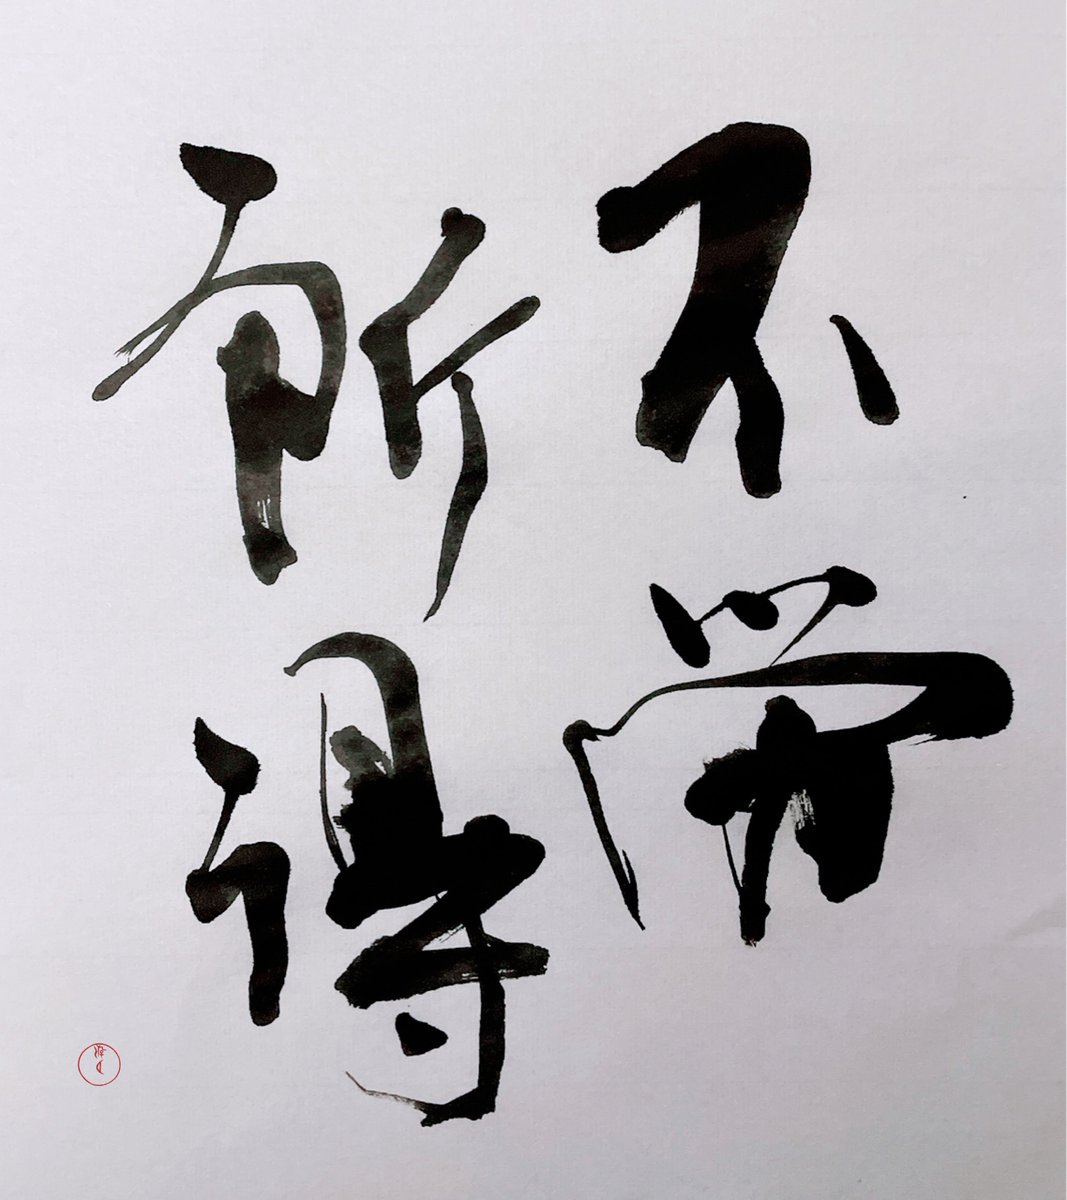 不労
所得